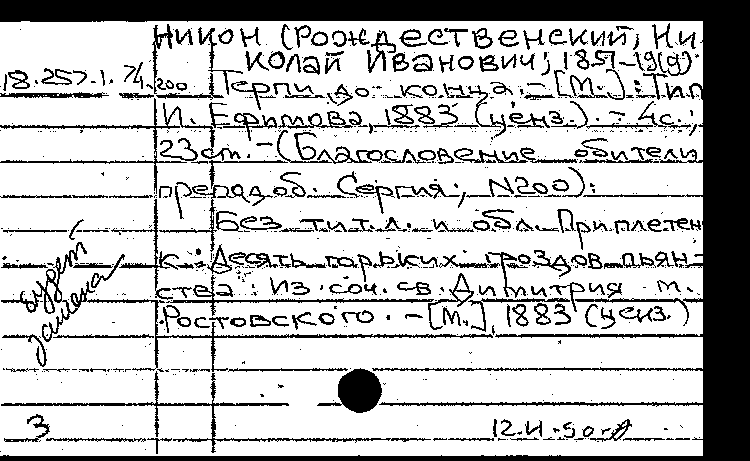 Никон (Рождественский, Ни
колай Иванович; 1851-1919).
18.257.1.74.200 Терпи до конца. - [М.]: Тип
И. Ефимова, 1883 (ценз.). - 4с.;
23см. - (Благословение обители
преподоб. Сергия; N200):
Без тит. л. и обл. Приплетен
к: Десять горьких гроздов пьян-
ства: Из соч. св. Димитрия м.
Ростовского. - [М.], 1883 (ценз.)
будет
замена
3